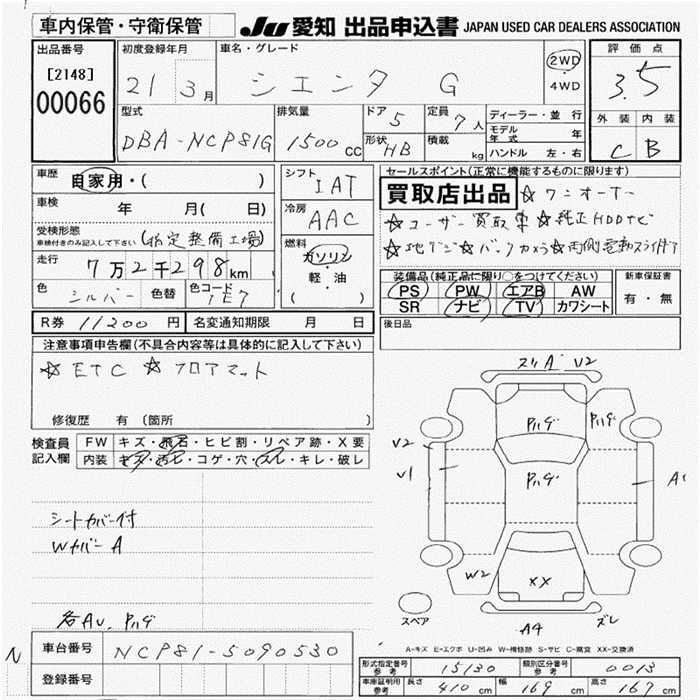 車内保管・守衛保管
JU 愛知 出品申込書 JAPAN USED CAR DEALERS ASSOCIATION
出品番号 [2148] 00066
初度登録年月 21 3月
車名・グレード シエンタ G
2WD・4WD
評価点 3.5
外装 内装
C B
型式 DBA-NCP81G
排気量 1500cc
ドア 5
形状 HB
定員 7人
積載 kg
ディーラー・並行
モデル年式 年
ハンドル 左・右
車歴 自家用・( )
車検 年 月( 日)
受検形態 車検付きのみ記入して下さい (指定整備工場)
走行 7万2千298km
色 シルバー 色替 色コード 1E7
シフト IAT
冷房 AAC
燃料 ガソリン 軽・油 ( )
セールスポイント(正常に機能するものに限ります)
買取店出品 ☆ワンオーナー
☆ユーザー買取車 ☆純正HDDナビ
☆地デジ ☆バックカメラ ☆両側電動スライドドア
装備品(純正品に限り○をつけてください)
PS PW エアB AW
SR ナビ TV カワシート
新車保証書 有・無
R券 11200円 名変通知期限 月 日
後日品
注意事項申告欄(不具合内容等は具体的に記入して下さい)
☆ETC ☆フロアマット
修復歴 有 (箇所 )
検査員記入欄
FW キズ・飛石・ヒビ割・リペア跡・X要
内装 キズ・汚れ・コゲ・穴・スレ・キレ・破レ
シートカバー付
Wカバー A
各AU, Pハゲ
スリA V2
Pハゲ Pハゲ
V2
V1 Pハゲ A1
W2 XX
スペア A4 ズレ
A-キズ E-エクボ U-凹み W-補修跡 S-サビ C-腐食 XX-交換済
N
車台番号 NCP81-5090530
登録番号
形式指定番号 参考 15130 類別区分番号 参考 0013
車庫証明用 参考 長さ 410cm 幅 169cm 高さ 167cm